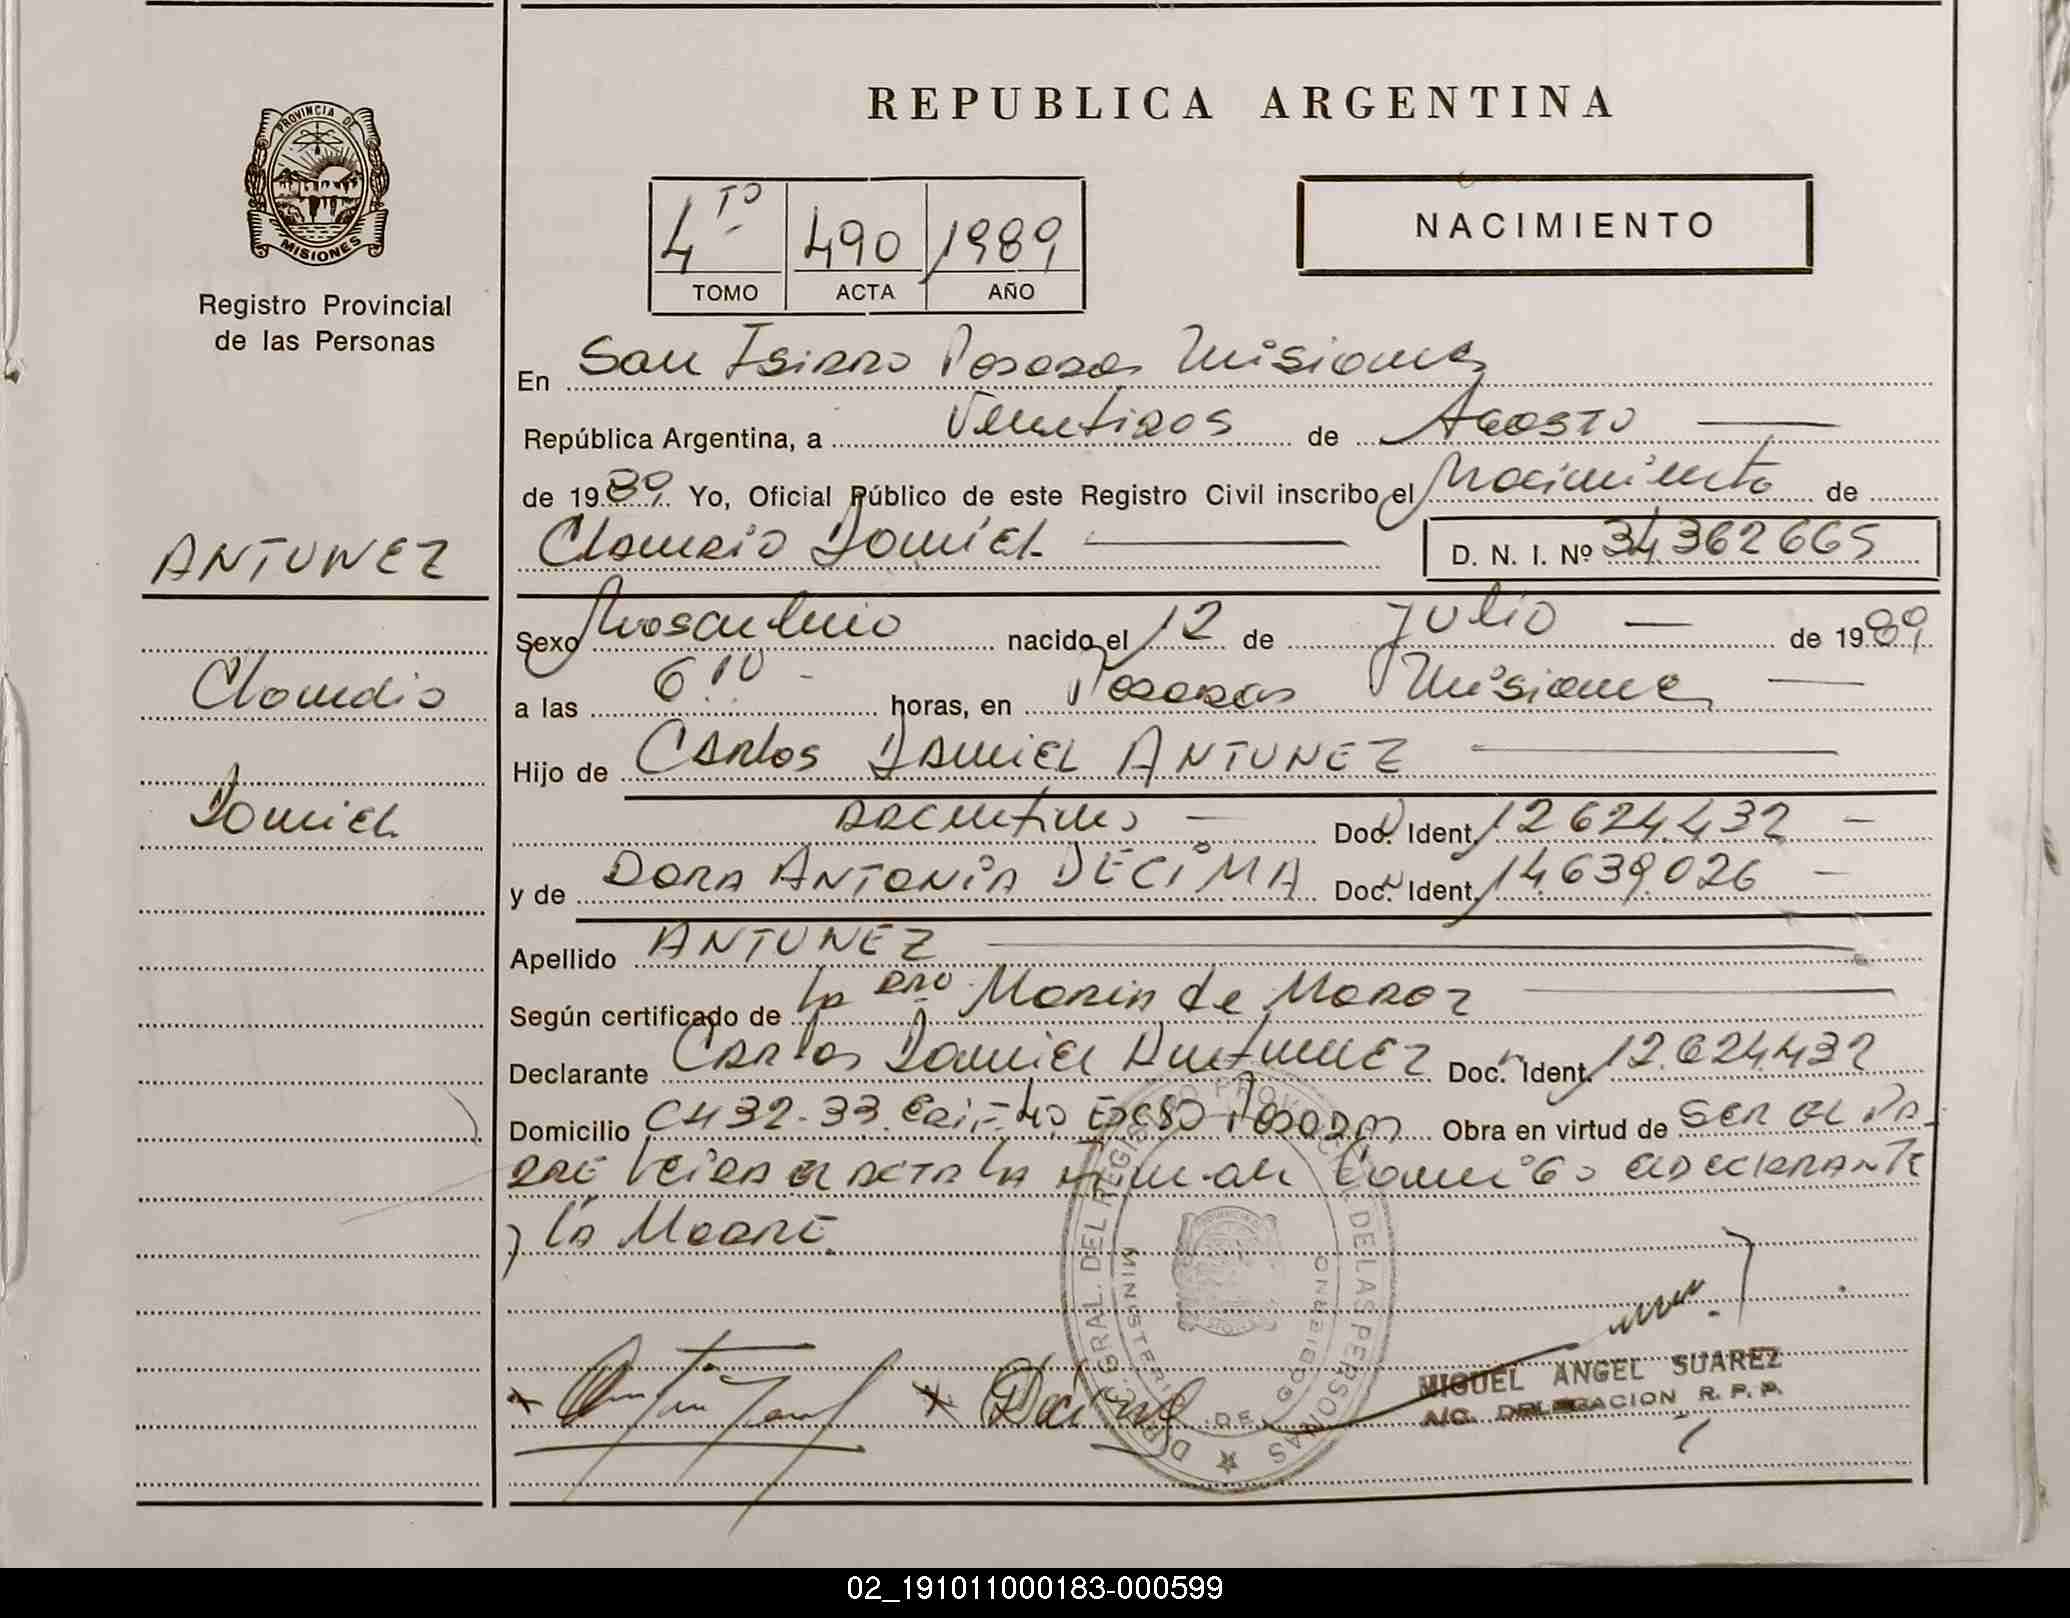 PROVINCIA DE
MISIONES
Registro Provincial
de las Personas
ANTUNEZ
Claudio
Daniel
REPUBLICA ARGENTINA
4TO 490 1989
TOMO ACTA AÑO
NACIMIENTO
En San Isidro Posadas Misiones
República Argentina, a Veintidos de Agosto
de 1989. Yo, Oficial Público de este Registro Civil inscribo el Nacimiento de
Claudio Daniel D. N. I. Nº 34362665
Sexo Masculino nacido el 12 de Julio de 1989
a las 6.10 horas, en Posadas Misiones
Hijo de Carlos Daniel ANTUNEZ
argentino Doc. Ident. 12624.432
y de DORA ANTONIA DECIMA Doc. Ident. 14.639.026
Apellido ANTUNEZ
Según certificado de la Dra. Maria de
Declarante Carlos Daniel Antunez Doc. Ident. 12.624.432
Domicilio Posadas Obra en virtud de SER EL PA-
DRE Leida el acta la firman conmigo el DECLARANTE
y la Madre.
DIREC. GRAL. DEL REGISTRO PROVINCIAL DE LAS PERSONAS
MINISTERIO DE GOBIERNO
MIGUEL ANGEL SUAREZ
A/C. DELEGACION R. P. P.
02_191011000183-000599